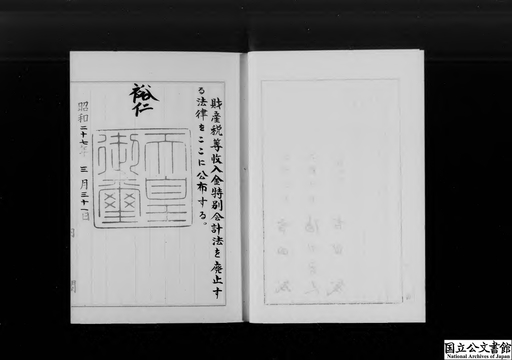 財產税等收入金特別会計法を廃止す
る法律をここに公布する。
裕仁
天皇
御璽
昭和二十七年三月三十一日
国立公文書館
National Archives of Japan